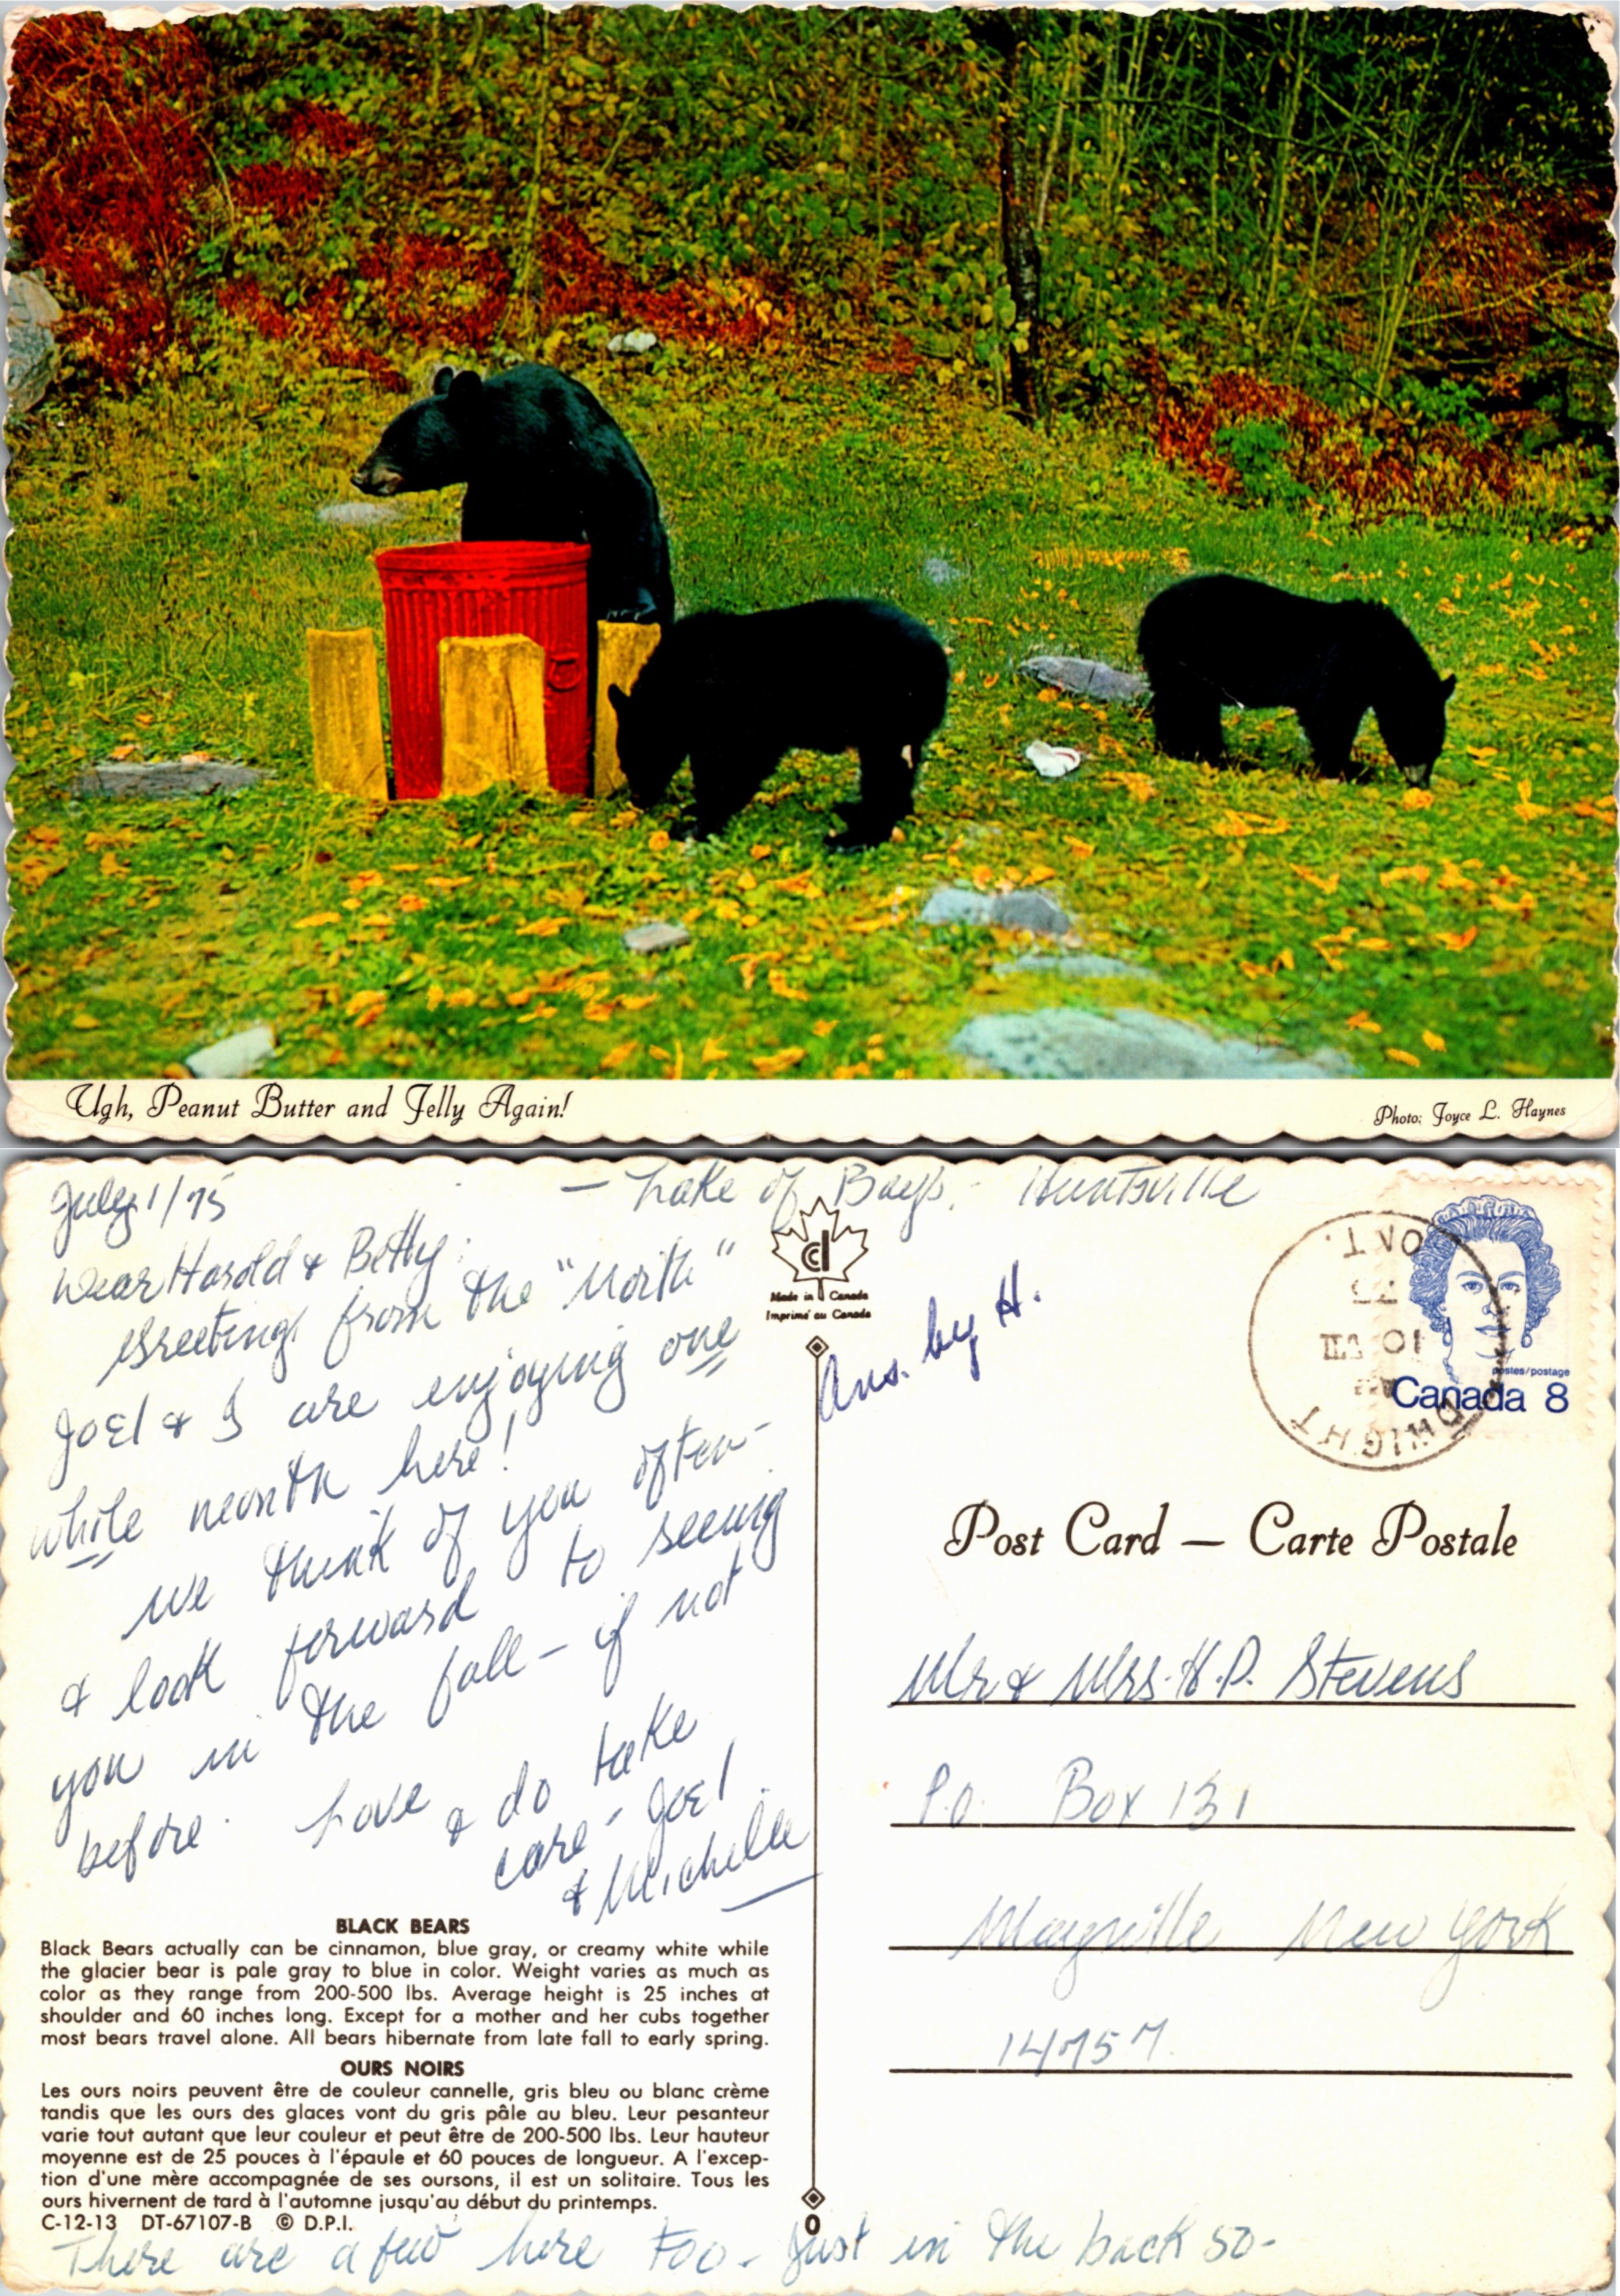 Ugh, Peanut Butter and Jelly Again!
Photo: Joyce L. Haynes
July 1/75 — Lake of Bays, - Huntsville
Dear Harold & Betty:
Greetings from the "North"
Joel & I are enjoying one
while month here!
We think of you often-
& look forward to seeing
you in the fall - if not
before. Love & do take
care - Joel
& Michelle
BLACK BEARS
Black Bears actually can be cinnamon, blue gray, or creamy white while
the glacier bear is pale gray to blue in color. Weight varies as much as
color as they range from 200-500 lbs. Average height is 25 inches at
shoulder and 60 inches long. Except for a mother and her cubs together
most bears travel alone. All bears hibernate from late fall to early spring.
OURS NOIRS
Les ours noirs peuvent être de couleur cannelle, gris bleu ou blanc crème
tandis que les ours des glaces vont du gris pâle au bleu. Leur pesanteur
varie tout autant que leur couleur et peut être de 200-500 lbs. Leur hauteur
moyenne est de 25 pouces à l'épaule et 60 pouces de longueur. A l'excep-
tion d'une mère accompagnée de ses oursons, il est un solitaire. Tous les
ours hivernent de tard à l'automne jusqu'au début du printemps.
C-12-13 DT-67107-B © D.P.I.
There are a few here too - Just in the back so-
Made in Canada
Imprimé au Canada
Ans. by H.
0
DWIGHT
01 VII
75
ONT.
postes/postage
Canada 8
Post Card — Carte Postale
Mr & Mrs. H.P. Stevens
P.O. Box 131
Mayville New York
14757.